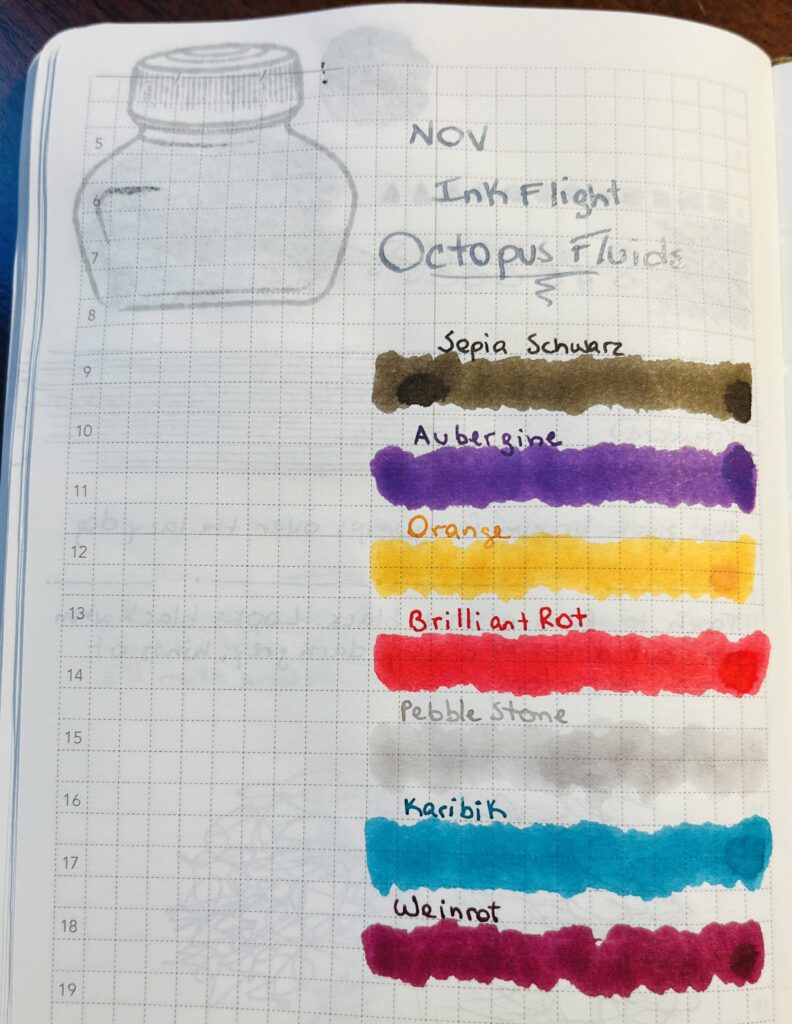 NOV
Ink Flight
Octopus Fluids
5
6
7
8
Sepia Schwarz
9
10
Aubergine
11
Orange
12
Brilliant Rot
13
14
Pebble Stone
15
Karibik
16
17
Weinrot
18
19